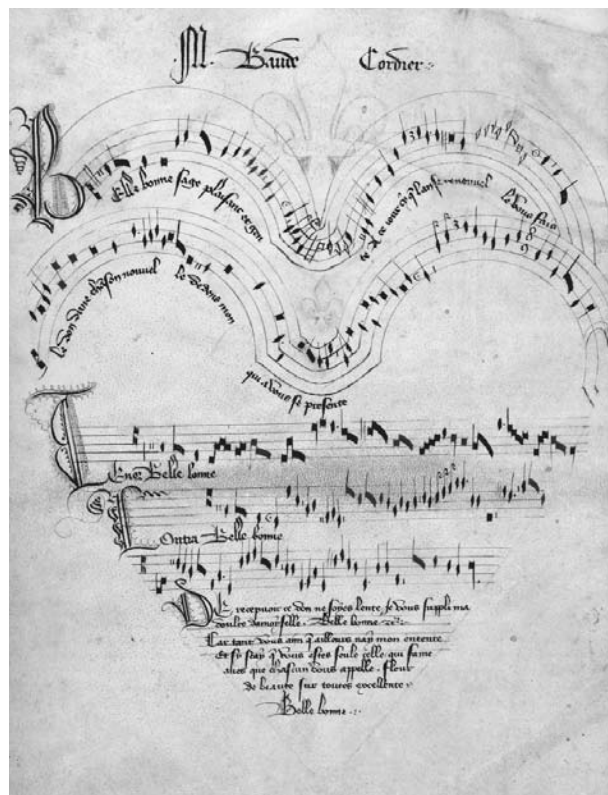 M. Baude Cordier:
Belle bonne sage plaisant et gen
te
le bous fais
le don dune chanson nouvel
le dedens mon
qui a vous se presente
Tenor Belle bonne
Contra Belle bonne
De recepuoir ce don ne soyes lente Je vous suppli ma
doulce damoyselle. Belle bonne
Car tant vous aim qaillours nay mon entente
Et sy scay q vous estes seule celle qui fame
aues que chascun vous appelle. fleur
de beaute sur toutes excellente
Belle bonne.